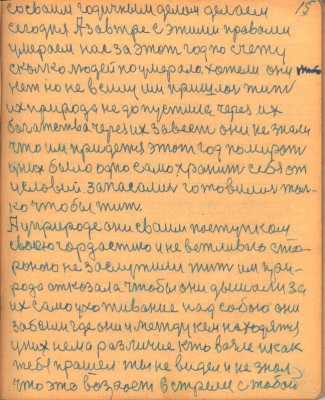 со своим годичным делом делаем
сегодня А завтре с этими правами
умираем нас за этот год по счету
сколко людей поумирало хотели они
нет но не всим им пришлос жит
их природа не допустила через их
богатства через их завест они не знали
что им придетя этот год помират
у них было одно само хранит себя от
условий запасалис готовилис тол-
ко чтобы жит.
А у природе они своим поступком
своею гордастию и не вотливаю сто-
роною не заслужили жит им при-
рода отказала чтобы они дышали За
их само ухоживание над собою они
забыли где они и между кем находятя
у них нема различие кто возле и как
тебя прашел ты не видел и не знал
что это возгоет встрели с тобой
15